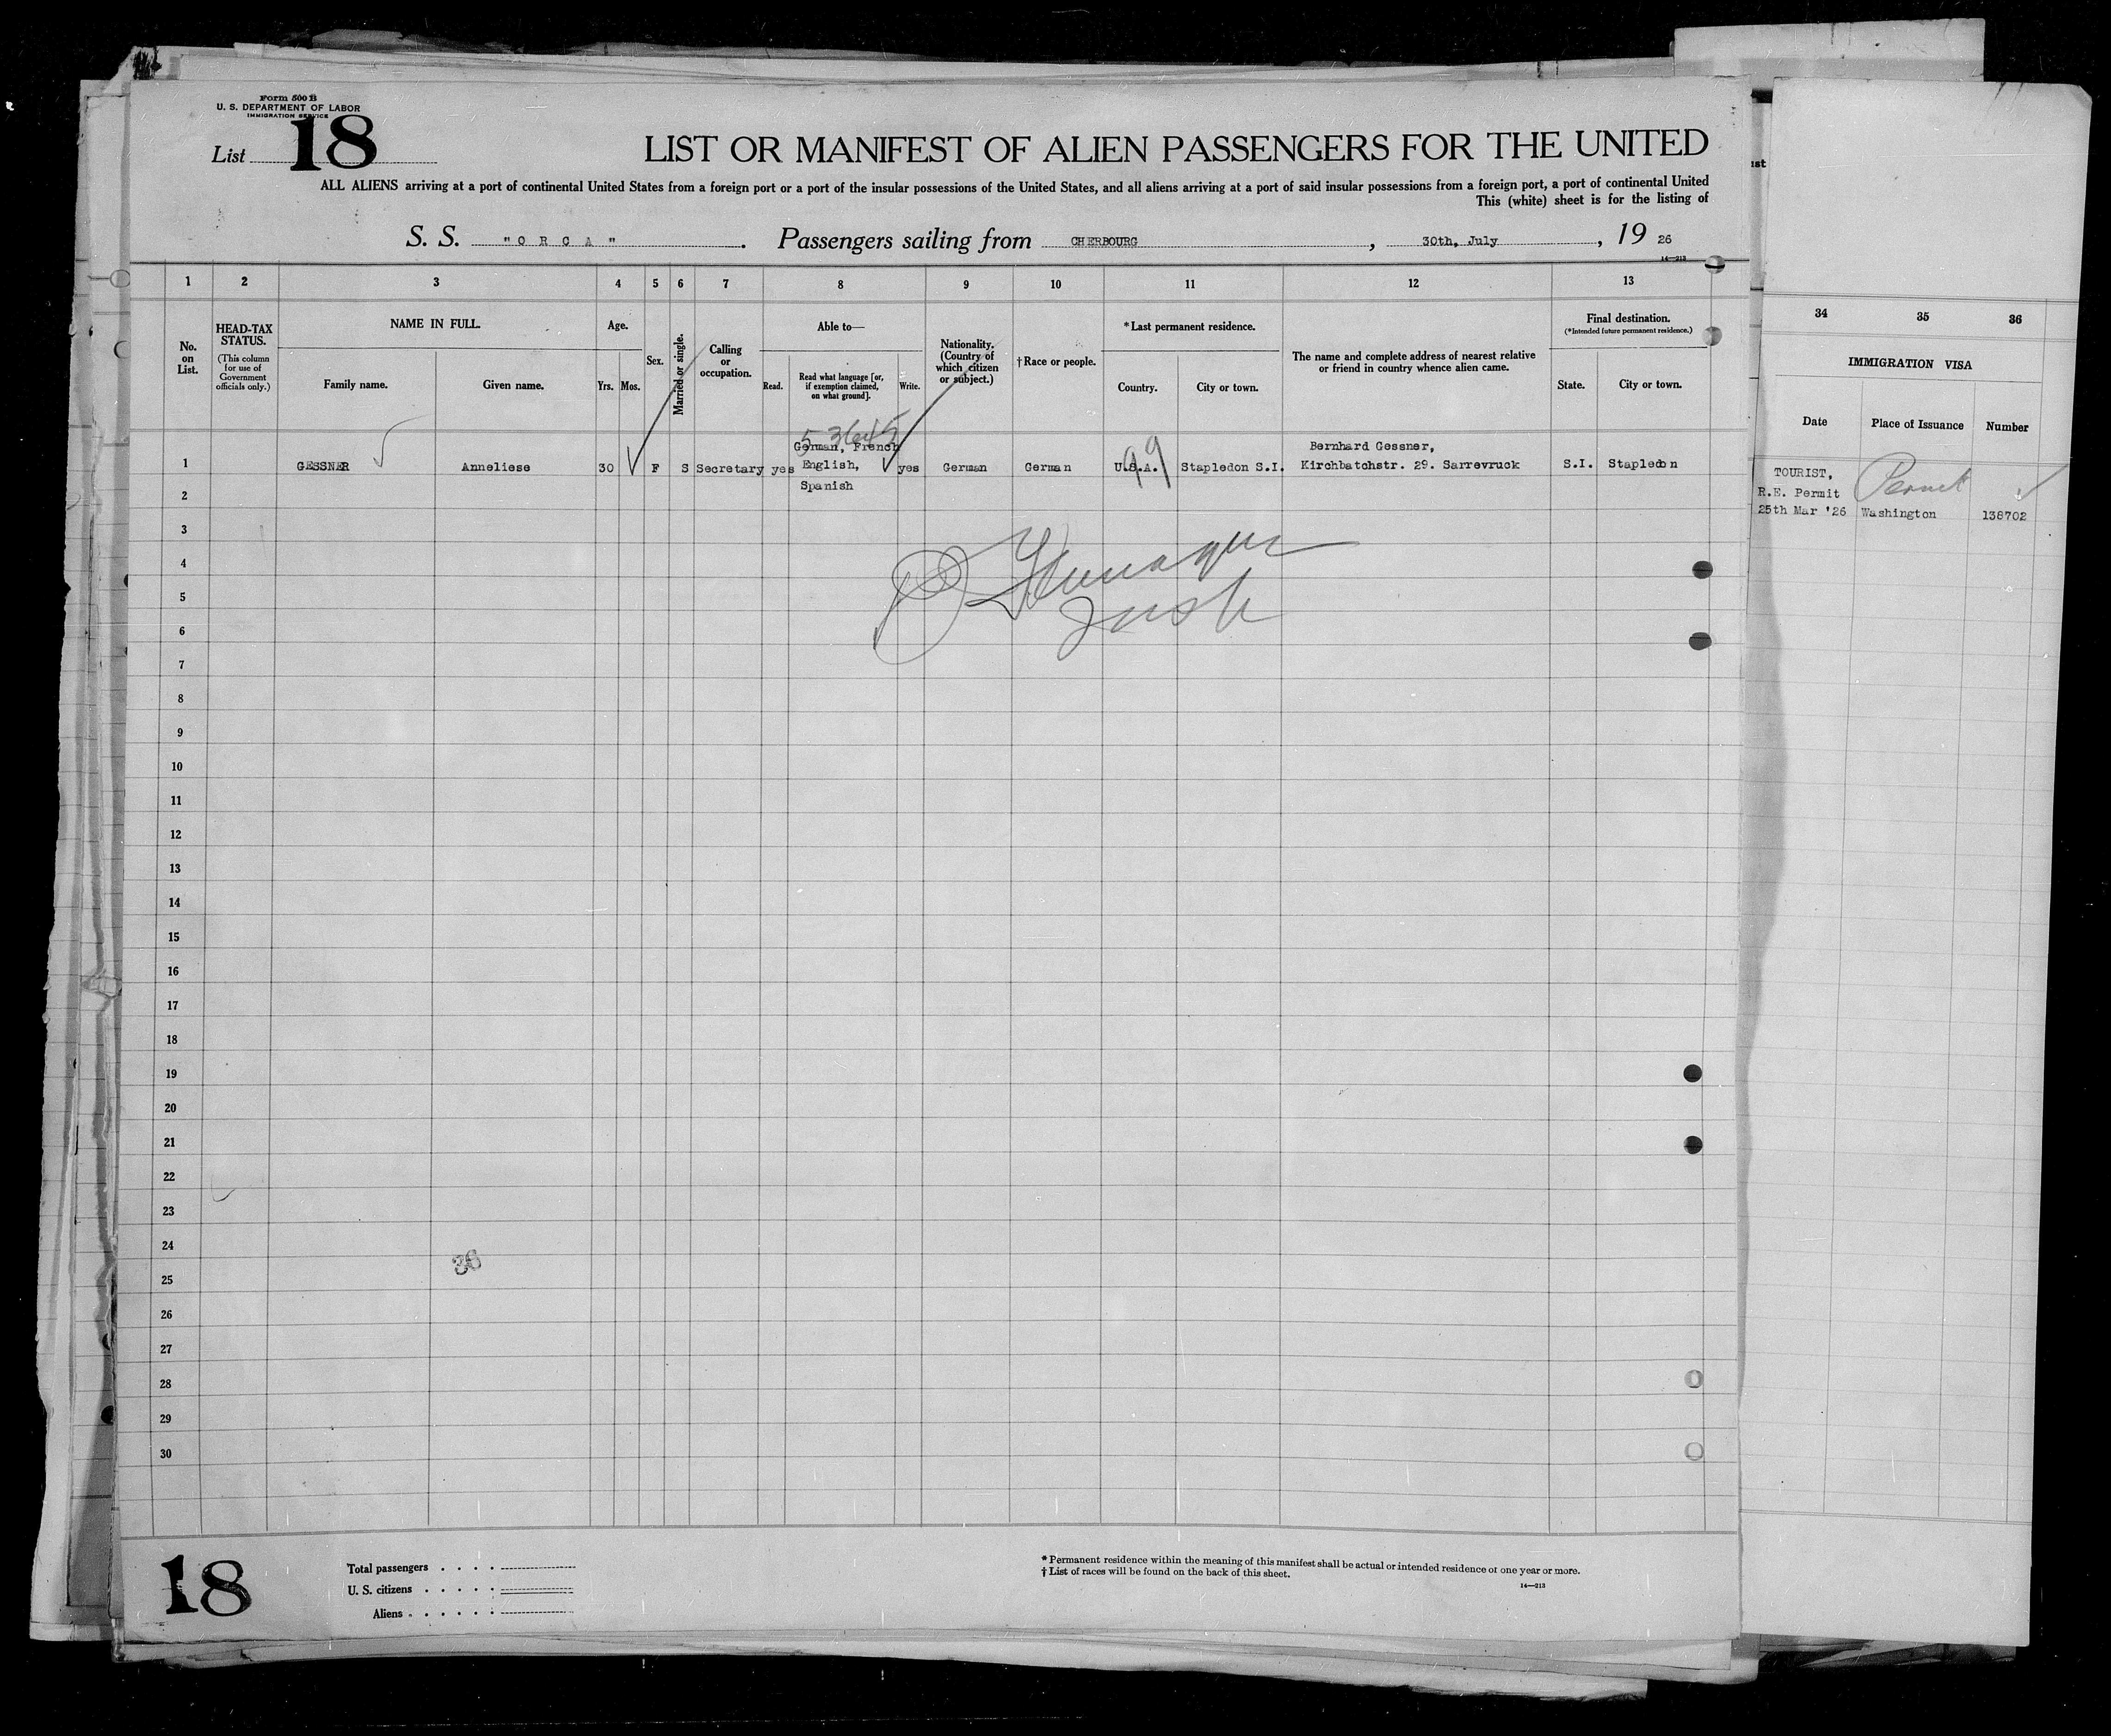 Form 500 B
U. S. DEPARTMENT OF LABOR
IMMIGRATION SERVICE
List 18
LIST OR MANIFEST OF ALIEN PASSENGERS FOR THE UNITED
ALL ALIENS arriving at a port of continental United States from a foreign port or a port of the insular possessions of the United States, and all aliens arriving at a port of said insular possessions from a foreign port, a port of continental United
This (white) sheet is for the listing of
S. S. "O R C A". Passengers sailing from CHERBOURG, 30th, July, 19 26
14—213
1 2 3 4 5 6 7 8 9 10 11 12 13
No. on List.
HEAD-TAX STATUS.
(This column for use of Government officials only.)
NAME IN FULL.
Family name. Given name.
Age.
Yrs. Mos.
Sex.
Married or single.
Calling or occupation.
Able to—
Read. Read what language [or, if exemption claimed, on what ground]. Write.
Nationality. (Country of which citizen or subject.)
†Race or people.
*Last permanent residence.
Country. City or town.
The name and complete address of nearest relative or friend in country whence alien came.
Final destination.
(*Intended future permanent residence.)
State. City or town.
34 35 36
IMMIGRATION VISA
Date Place of Issuance Number
German, French Bernhard Gessner,
1 GESSNER Anneliese 30 F S Secretary yes English, yes German German U.S.A. Stapledon S.I. Kirchbatchstr. 29. Sarrevruck S.I. Stapledon
Spanish
99
TOURIST,
R.E. Permit Permit
25th Mar '26 Washington 138702
2
3
4
5
6
7
8
9
10
11
12
13
14
15
16
17
18
19
20
21
22
23
24
36
25
26
27
28
29
30
18
Total passengers
U. S. citizens
Aliens
* Permanent residence within the meaning of this manifest shall be actual or intended residence of one year or more.
† List of races will be found on the back of this sheet.
14—213